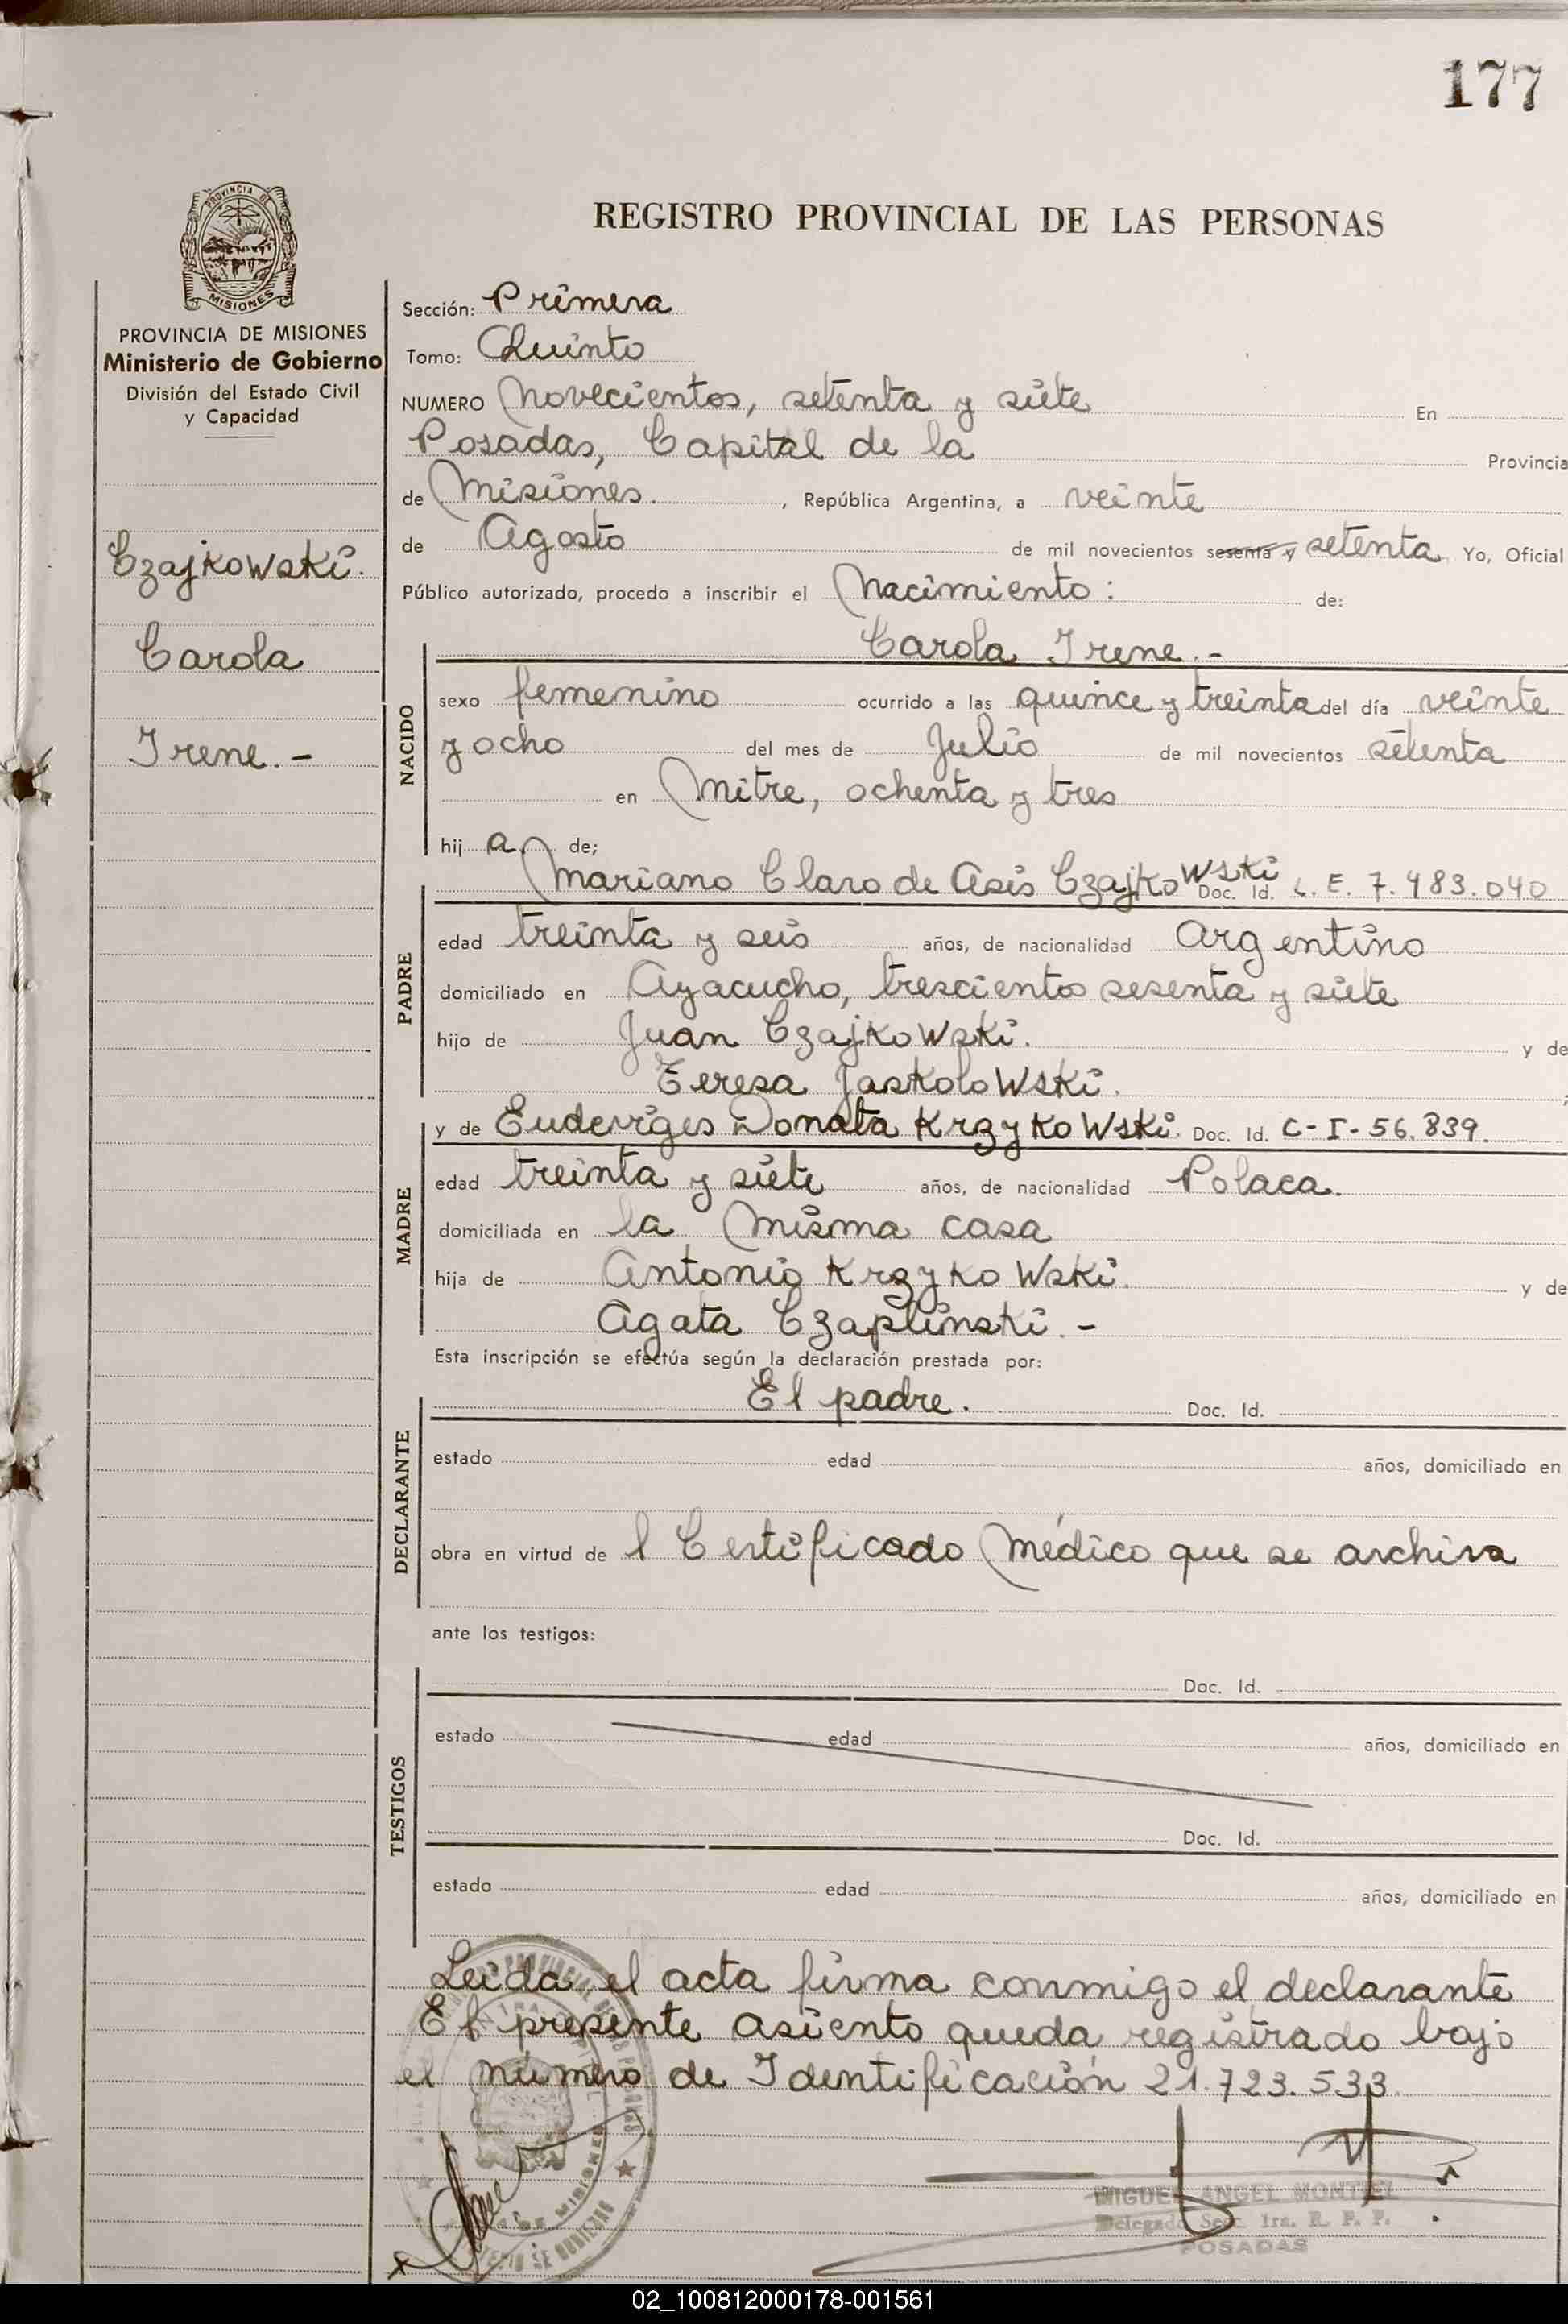 177
PROVINCIA DE
MISIONES
REGISTRO PROVINCIAL DE LAS PERSONAS
PROVINCIA DE MISIONES
Ministerio de Gobierno
División del Estado Civil
y Capacidad
Czajkowski.
Carola
Irene.-
Sección: Primera
Tomo: Quinto
NUMERO Novecientos, setenta y siete En
Posadas, Capital de la Provincia
de Misiones. , República Argentina, a veinte
de Agosto de mil novecientos sesenta y setenta Yo, Oficial
Público autorizado, procedo a inscribir el Nacimiento: de:
Carola Irene.-
NACIDO
sexo femenino ocurrido a las quince y treinta del día veinte
y ocho del mes de Julio de mil novecientos setenta
en Mitre, ochenta y tres
hij a de;
Mariano Claro de Asis Czajkowski Doc. Id. L.E. 7.483.040
PADRE
edad treinta y seis años, de nacionalidad Argentino
domiciliado en Ayacucho, trescientos sesenta y siete
hijo de Juan Czajkowski. y de
Teresa Jaskolowski.
y de Eudeviges Donata Krzykowski. Doc. Id. C-I-56.839.
MADRE
edad treinta y siete años, de nacionalidad Polaca.
domiciliada en la misma casa
hija de Antonio Krzykowski. y de
Agata Czaplinski.-
Esta inscripción se efectúa según la declaración prestada por:
El padre. Doc. Id.
DECLARANTE
estado edad años, domiciliado en
obra en virtud de l Certificado Médico que se archiva
ante los testigos:
Doc. Id.
TESTIGOS
estado edad años, domiciliado en
Doc. Id.
estado edad años, domiciliado en
Leida el acta firma conmigo el declarante
El presente asiento queda registrado bajo
el número de Identificación 21.723.533.
MIGUEL ANGEL MONTIEL
Delegado Secc. 1ra. R. P. P.
POSADAS
02_100812000178-001561